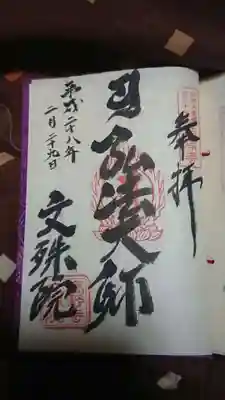 奉拝
弘法大師
文殊院
平成二十八年
二月二十九日